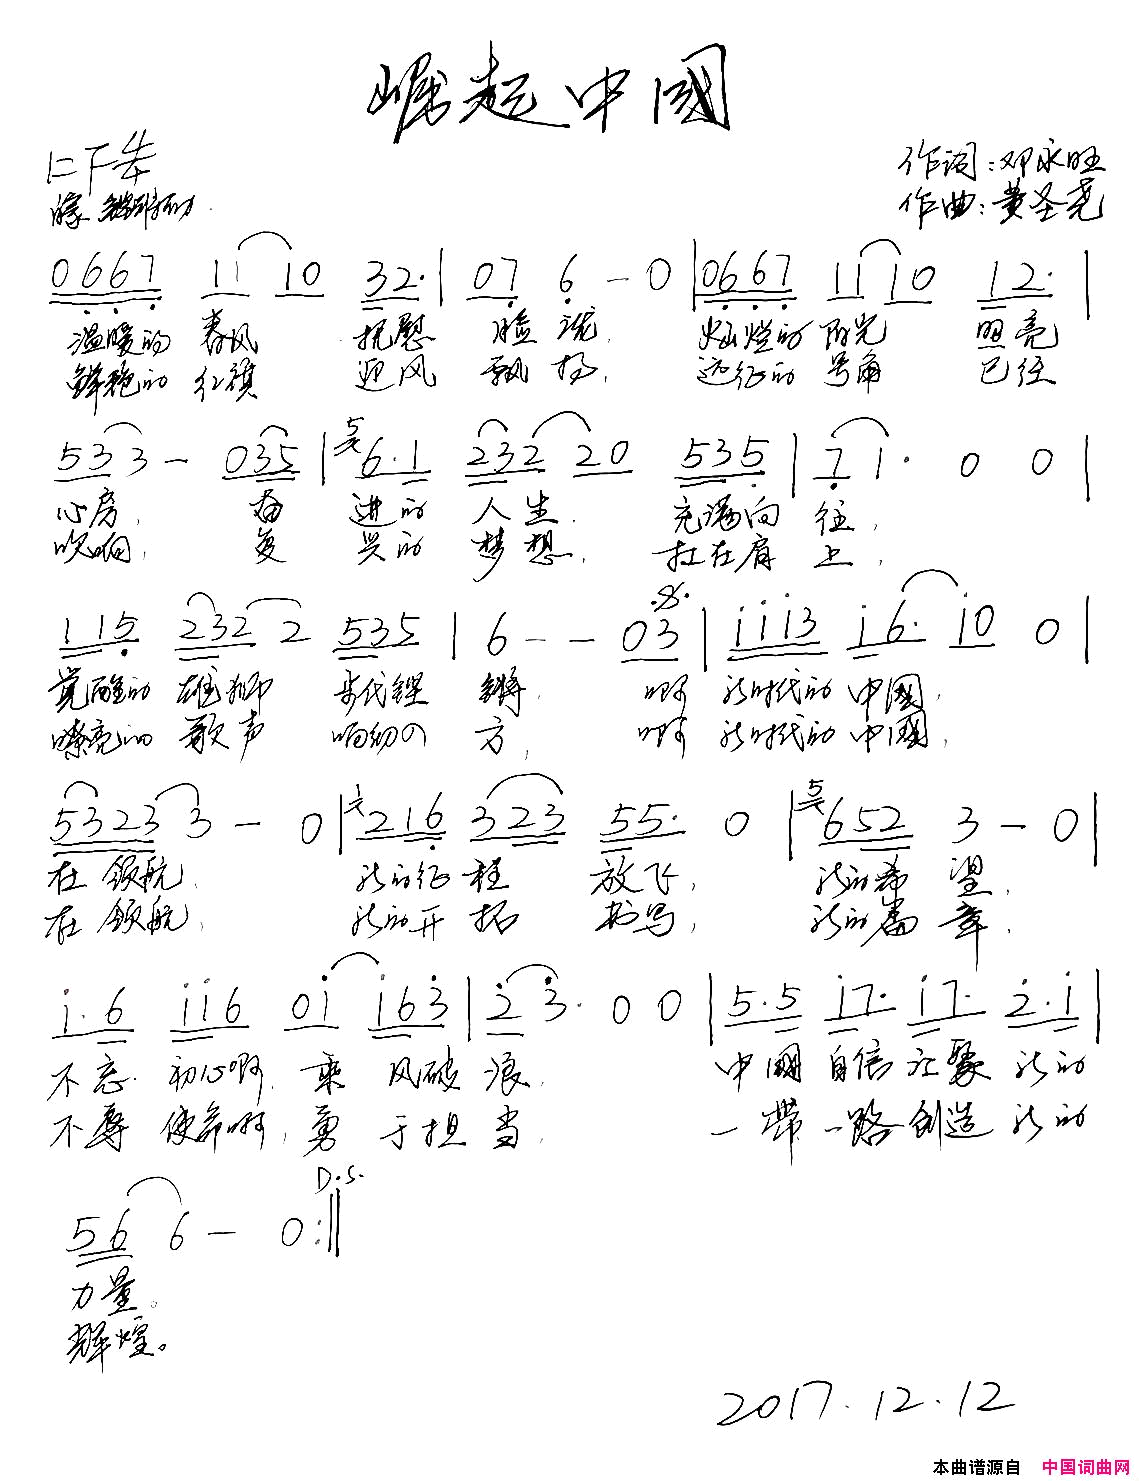 崛起中國
作词:邓永旺
作曲:黄圣尧
0667 11 10 32· | 07 6 - 0 | 0667 11 10 12· |
温暖的 春风 抚慰 脸 , 灿烂的 阳光 照亮
鲜艳的 红旗 迎风 飘扬, 远征的 号角 已经
533 - 035 | 6·1 232 20 535 | 71· 0 0 |
心房, 奋 进的 人生 充满向 往,
吹响, 复 兴的 梦想, 扛在肩 上,
115 232 2 535 | 6 - - 03 | 1113 16· 10 0 |
觉醒的 雄狮 步伐铿 锵, 啊 新时代的 中國,
嘹亮的 歌声 响彻 方, 啊 新时代的 中國,
5323 3 - 0 | 216 323 55· 0 | 652 3 - 0 |
在 领航, 新的征 程 放飞, 新的希 望,
在 领航, 新的开 拓 书写, 新的篇 章,
1·6 116 01 163 | 23· 0 0 | 5·5 17· 17· 2·1 |
不忘 初心啊, 乘 风破 浪, 中國 自信 汇聚 新的
不辱 使命啊, 勇 于担 当, 一带 一路 创造 新的
D.S.
56 6 - 0 :||
力量。
辉煌。
2017.12.12
本曲谱源自 中国词曲网